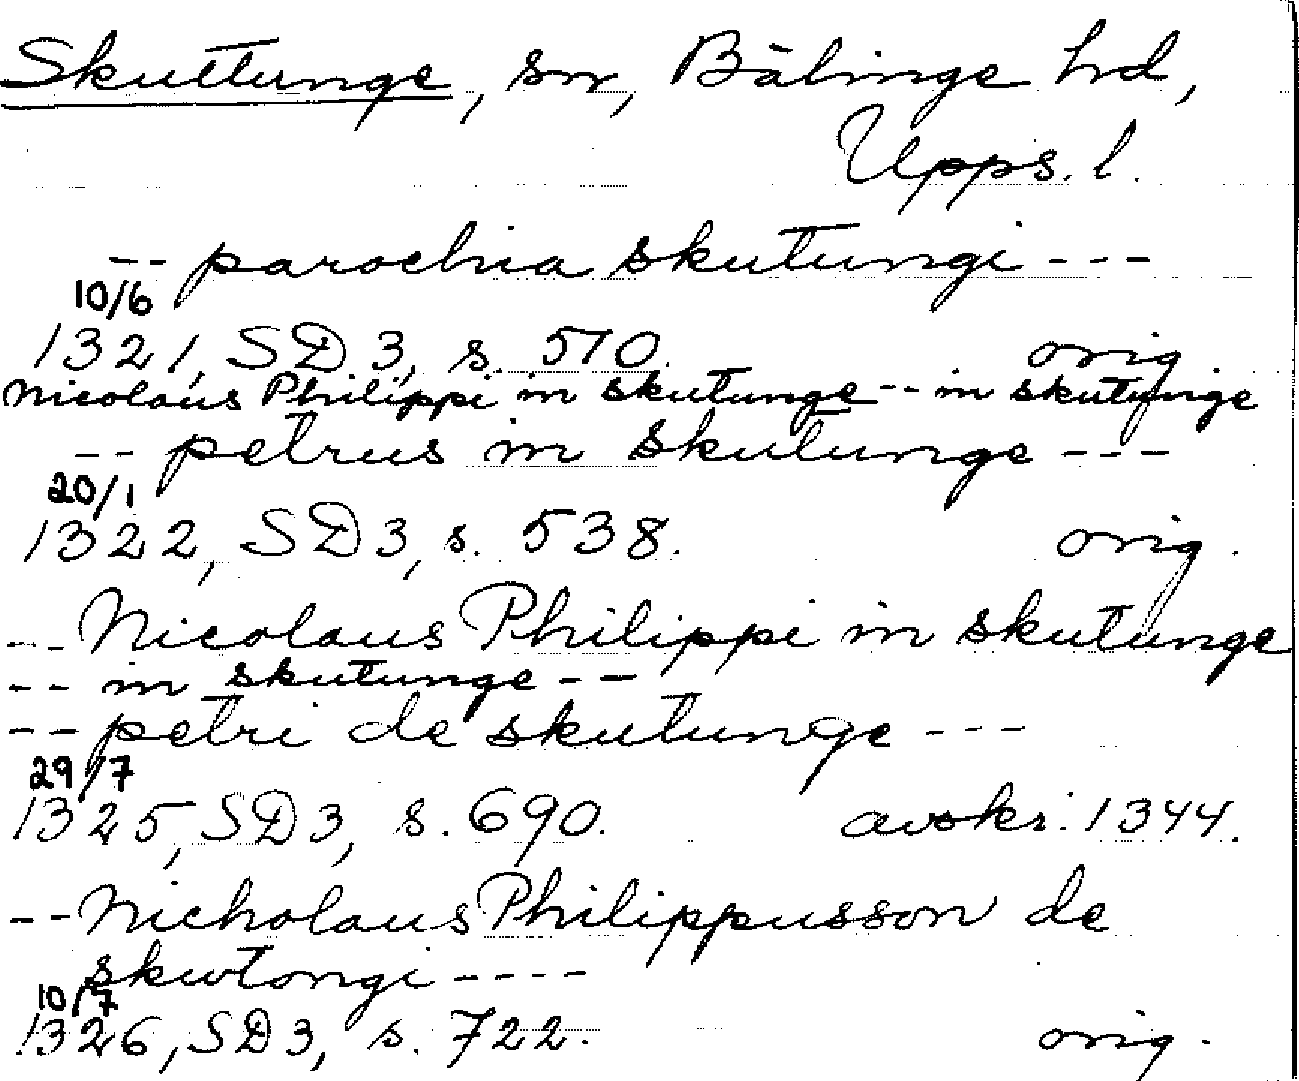 Skuttunge, sn, Bälinge hd,
Upps. l.
-- parochia skutungi ---
10/6
1321, SD 3, s. 510. orig.
Nicolaus Philippi in skutunge -- in skutunge
-- petrus in skutunge ---
20/1
1322, SD 3, s. 538. orig.
-- Nicolaus Philippi in skutunge
-- in skutunge --
-- petri de skutunge ---
29/7
1325, SD 3, s. 690. avskr. 1344.
-- Nicholaus Philippusson de
skwtongi ----
10/7
1326, SD 3, s. 722. orig.